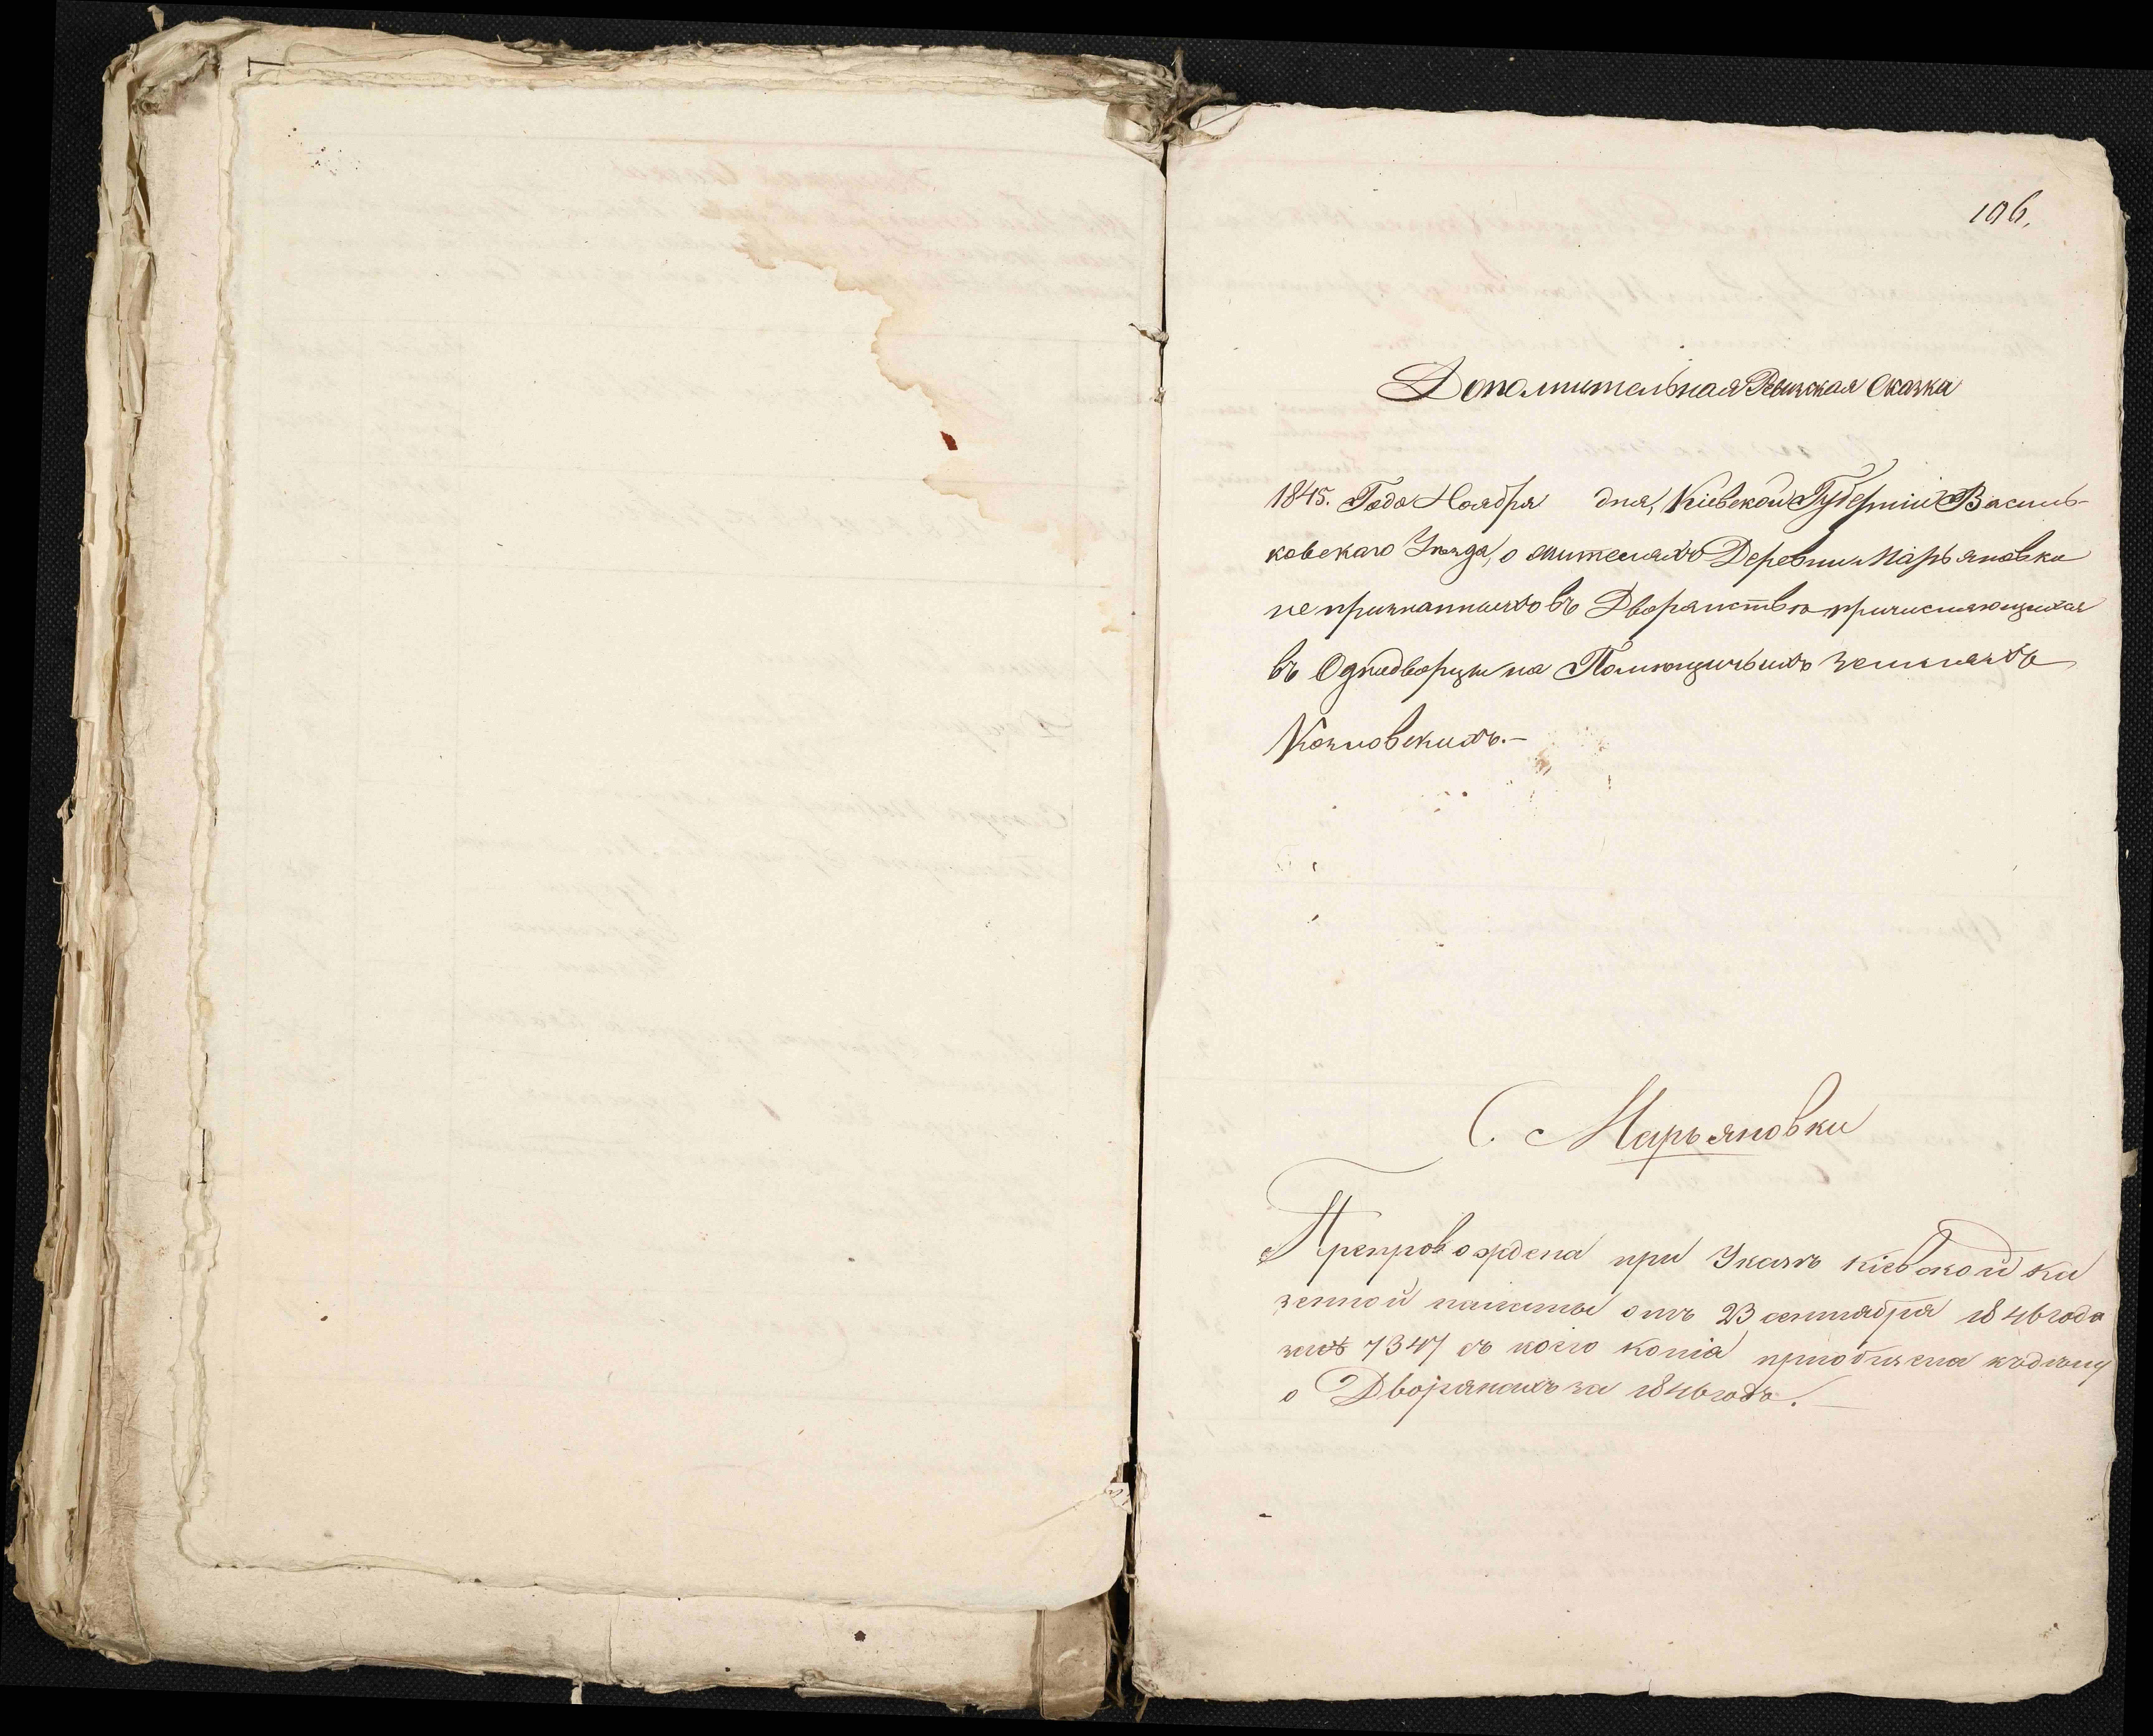 106.
Дополнительная Ревизская Сказка
1845. Года Ноября дня, Кіевской Губерніи Василь-
ковскаго Уѣзда, о жителяхъ Деревни Марьяновки
непризнанныхъ въ Дворянствѣ причисляющихся
въ Однодворцы на Помѣщичьихъ земляхъ
Козловскихъ.-
С. Марьяновки
Препровождена при Указѣ Кіевской Ка
зенной палаты отъ 23 сентября 1846 года
за № 7347 съ коего копія приобщена къ дѣлу
о Дворянахъ за 1846 годъ.